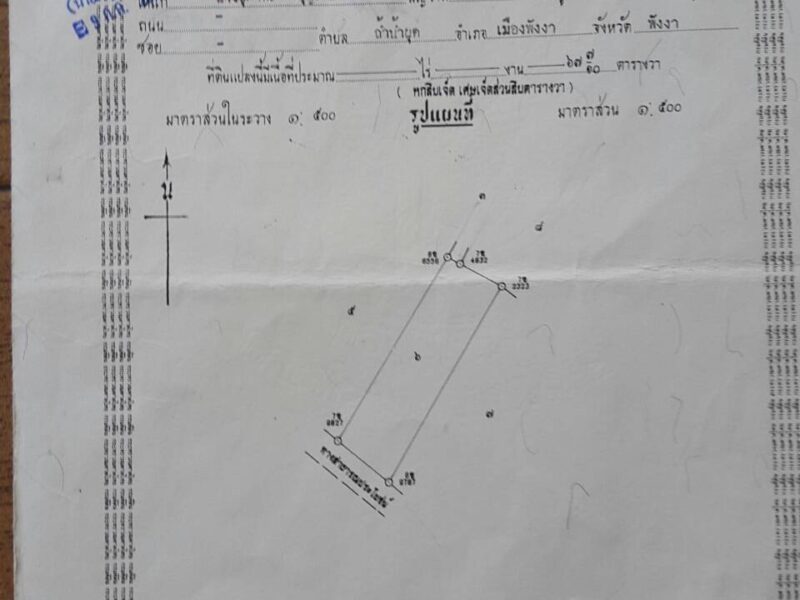 ถนน -
ซอย - ตำบล ถ้ำน้ำผุด อำเภอ เมืองพังงา จังหวัด พังงา
ที่ดินแปลงนี้มีเนื้อที่ประมาณ ไร่ งาน ๖๗ ๗/๑๐ ตารางวา
( หกสิบเจ็ด เศษเจ็ดส่วนสิบตารางวา )
มาตราส่วนในระวาง ๑: ๕๐๐ รูปแผนที่ มาตราส่วน ๑: ๕๐๐
น
๓
๘
8ซ 6556
7ซ 4932
7ซ 2323
๕
๖
๗
7ซ
8ซ
ทางสาธารณประโยชน์